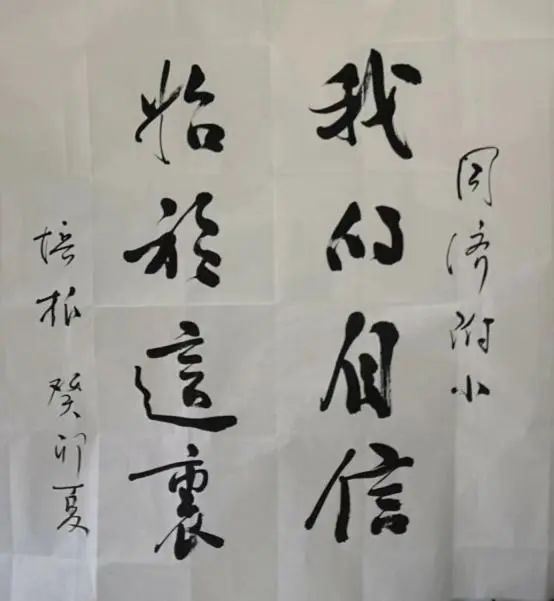 同济附小
我的自信
始於這裏
培根 癸卯夏